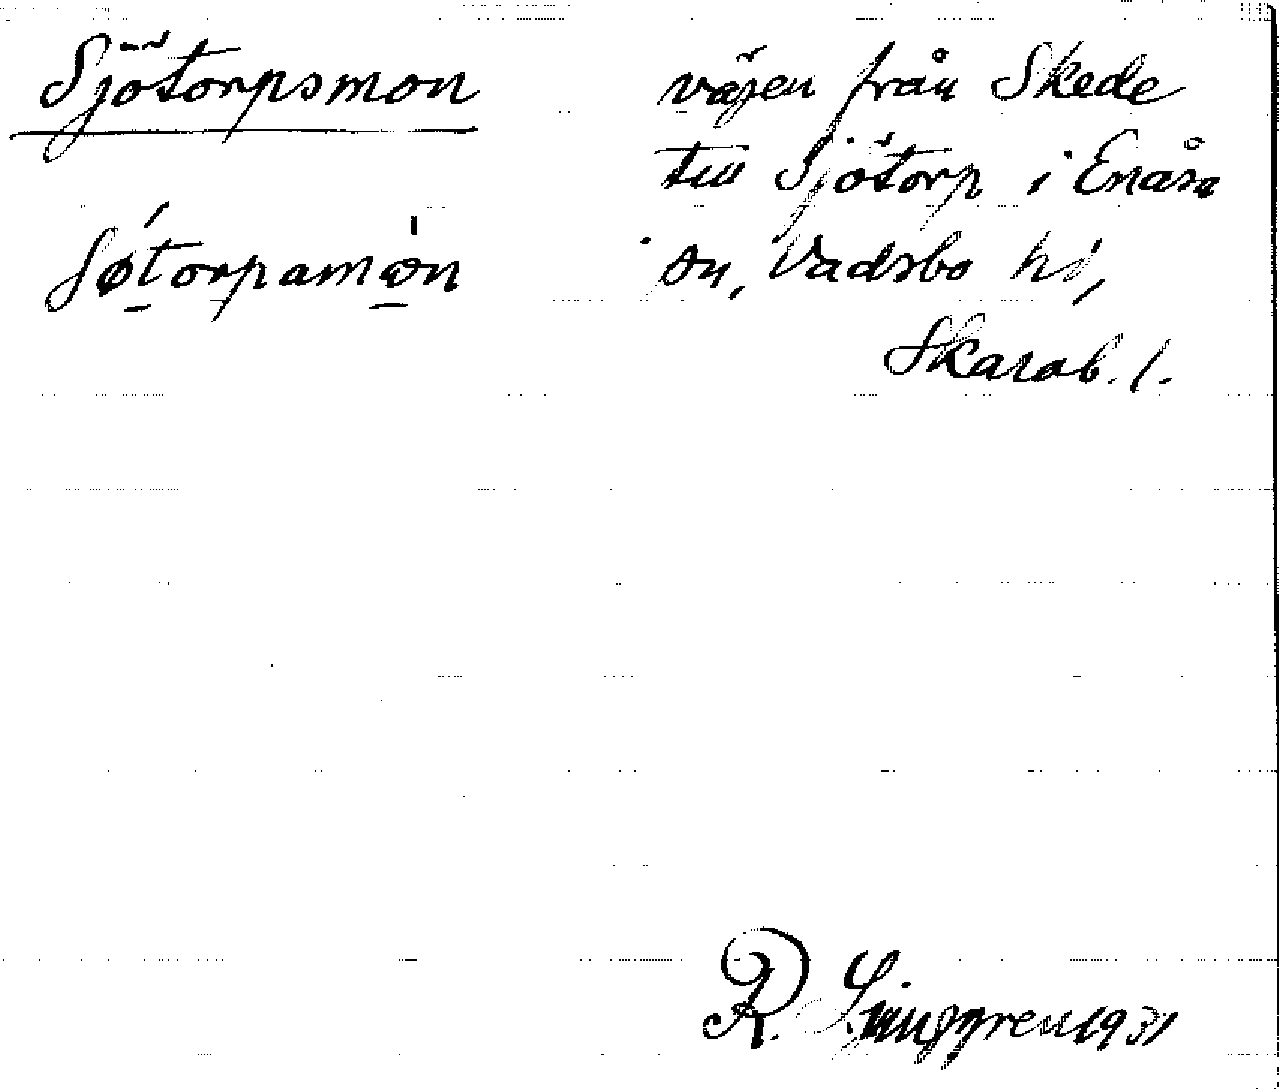 Sjötorpsmon
Søtorpamon
vägen från Skede
till Sjötorp i Enåsa
sn, Vadsbo hd,
Skarab. l.
R. Ljunggren 1931